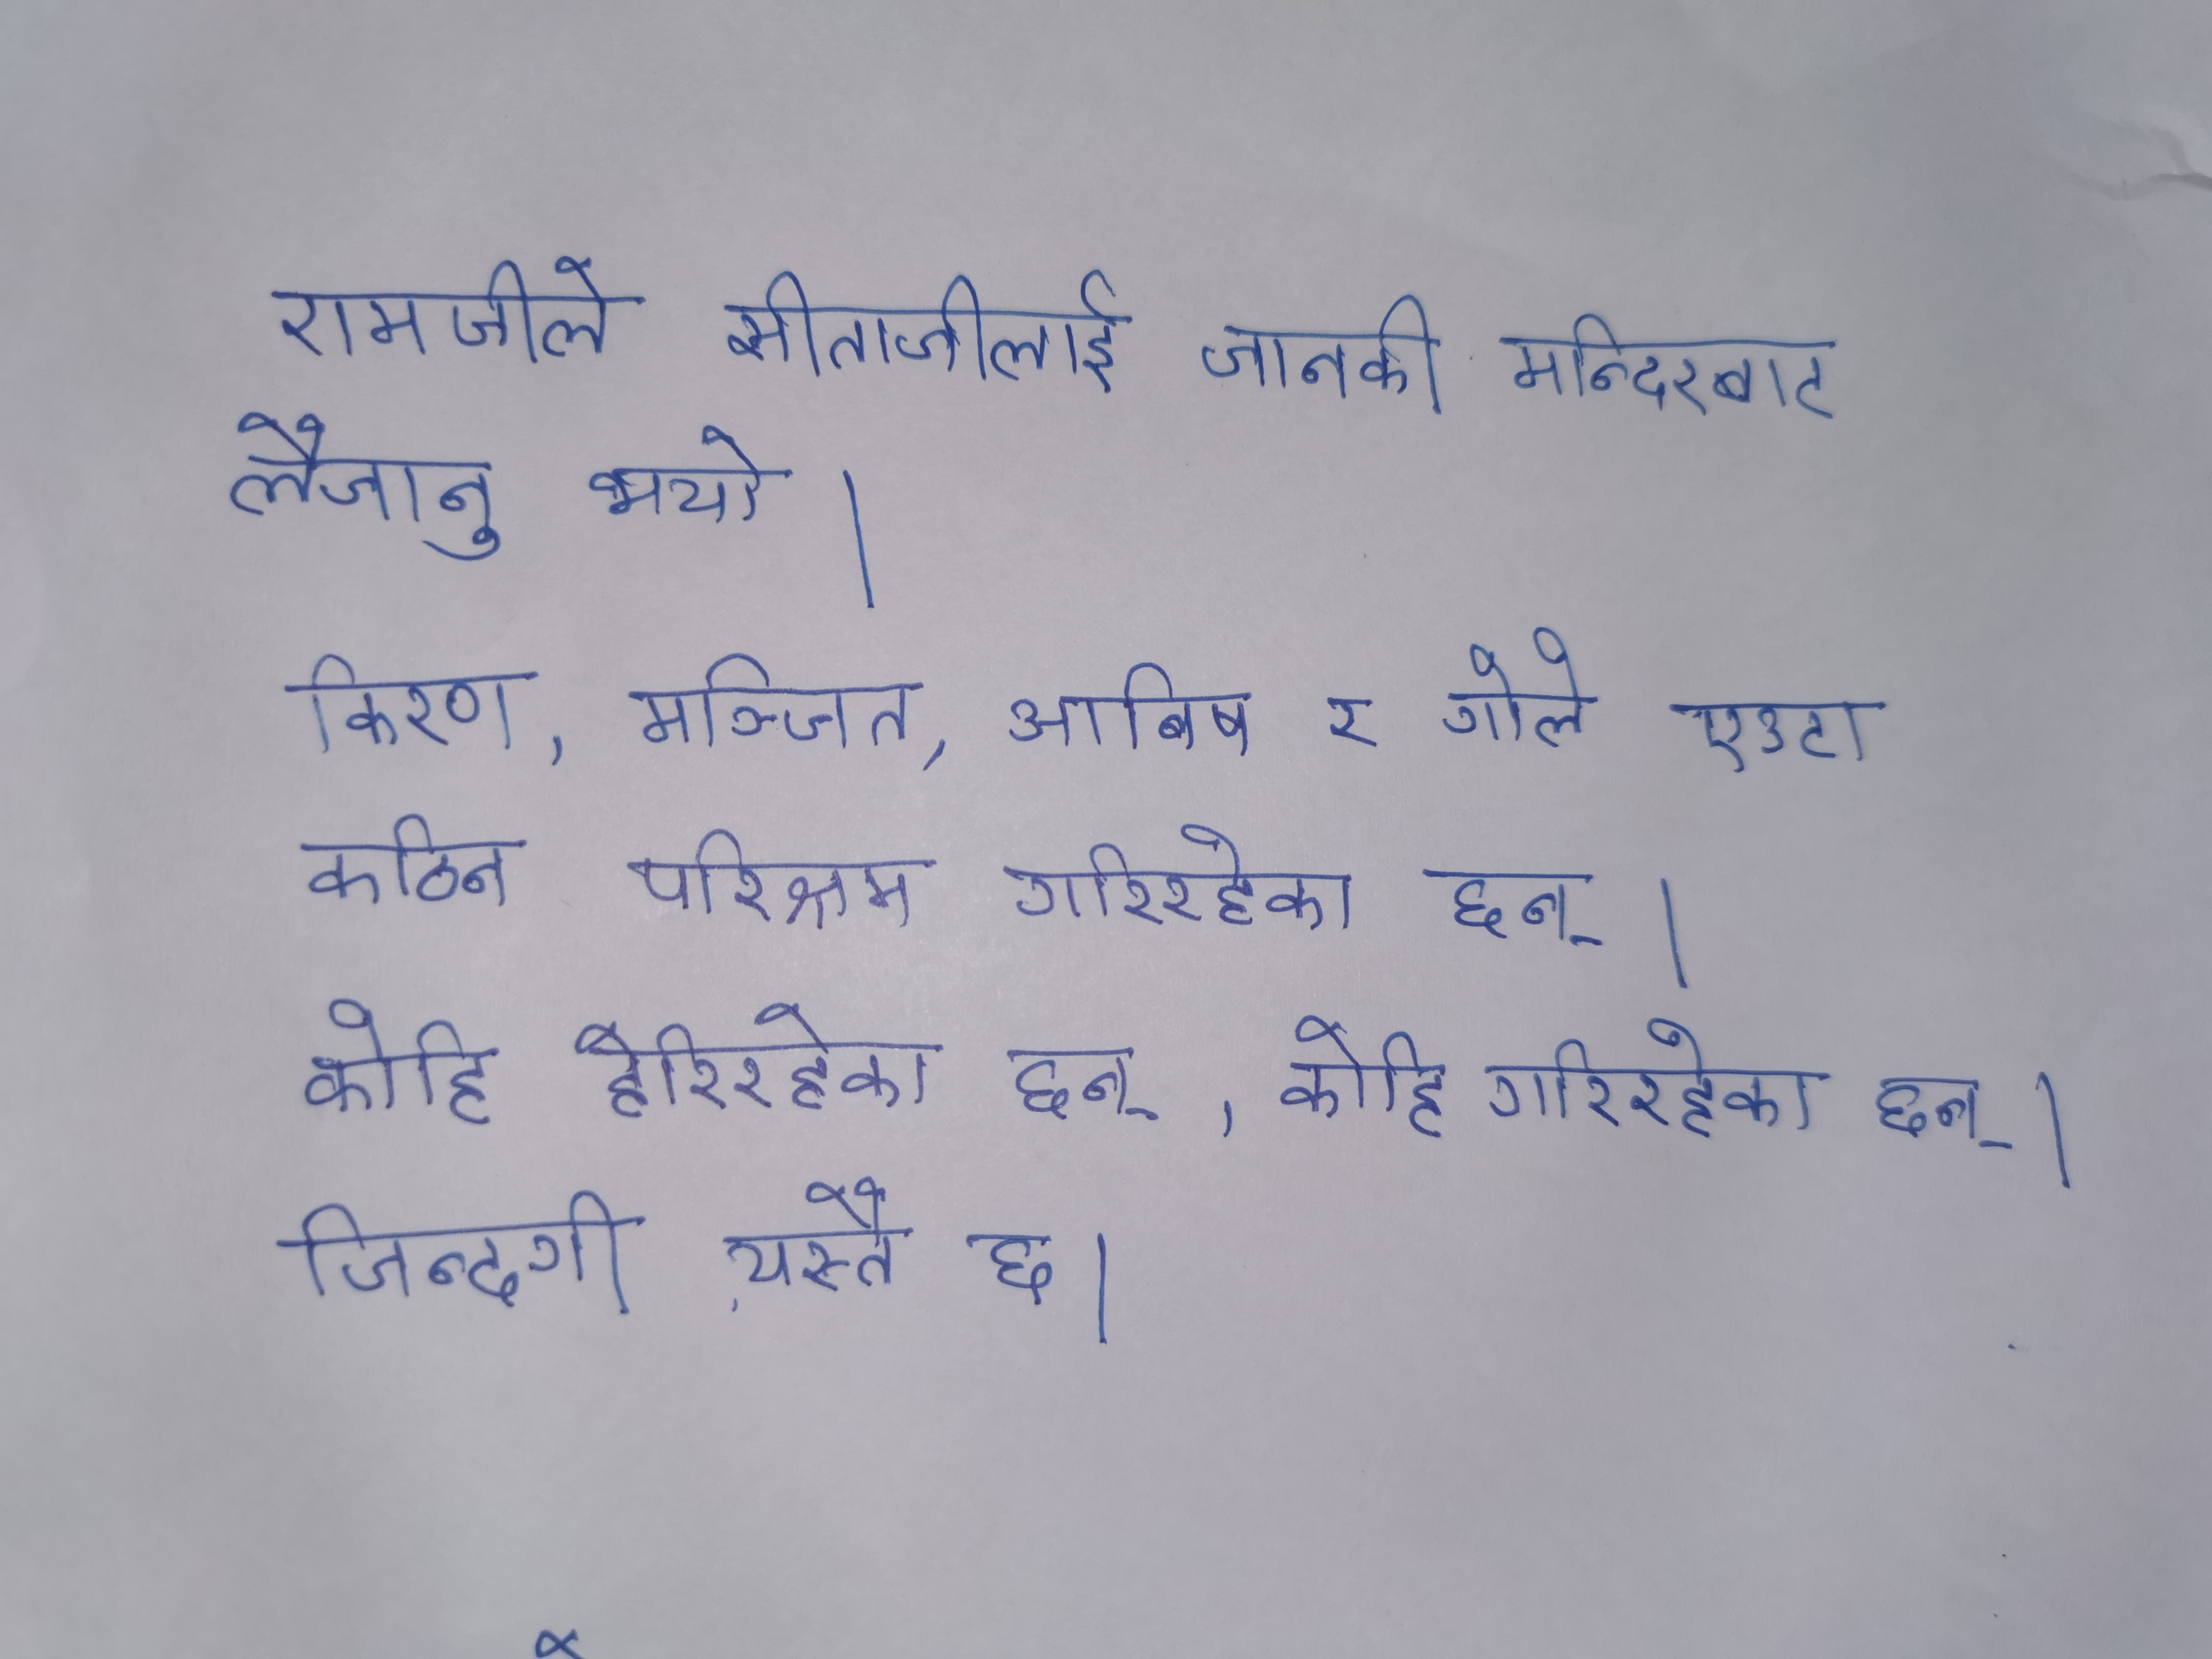 रामजीले सीताजीलाई जानकी मन्दिरबाट
लैजानु भयो ।
किरण, मञ्जित, आबिष र गोले एउटा
कठिन परिश्रम गरिरहेका छन् ।
कोहि हेरिरहेका छन् , कोहि गरिरहेका छन् ।
जिन्दगी यस्तै छ ।